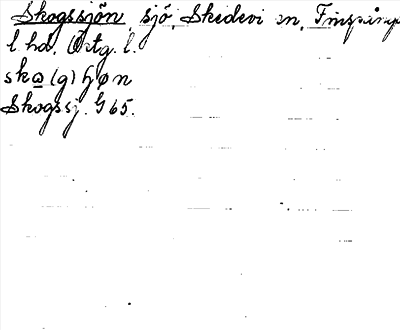 Skogssjön, sjö, Skedevi sn, Finspång
l hd. Östg. l.
sko(g)ʃøn
Skogssj. G 65.